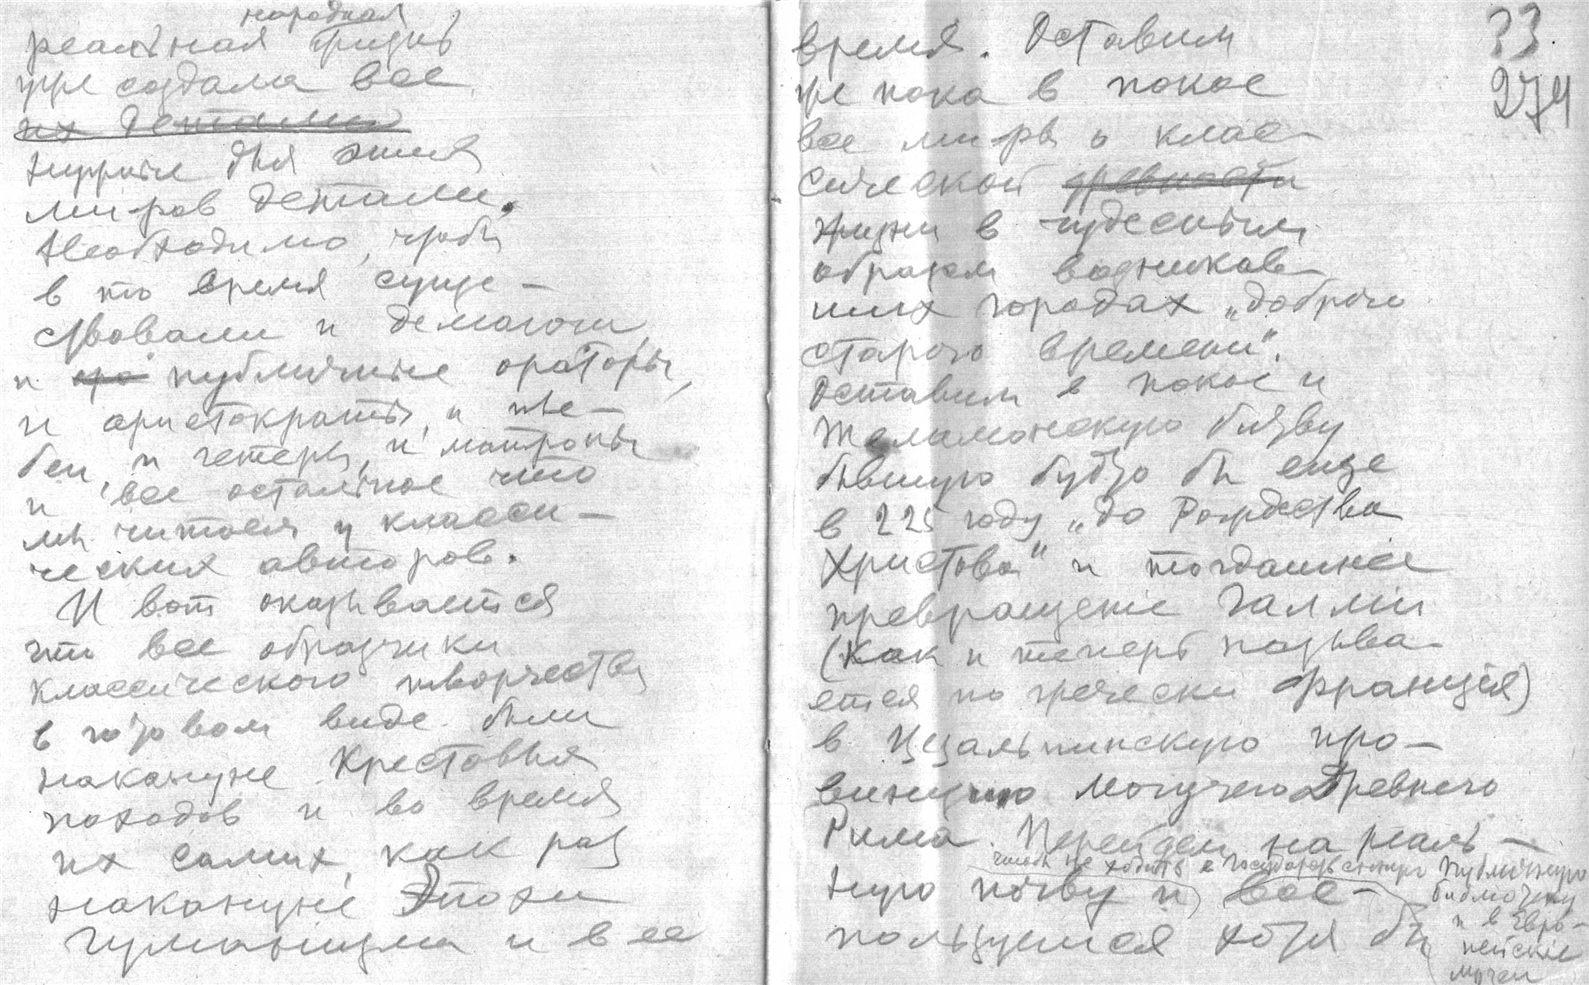 народная
реальная жизнь
уже создала все
их детали
нужные для этих
миров детали.
Необходимо, чтобы
в то время суще-
ствовали и демагоги
и ора публичные ораторы,
и аристократы, и пле-
беи, и гетеры, и матроны
и все остальное что
мы читаем у класси-
ческих авторов.
И вот оказывается
что все образчики
классического творчества
в готовом виде были
накануне Крестовых
походов и во время
их самих, как раз
накануне Эпохи
гуманизма и в ее
33.
274
время. Оставим
же пока в покое
все мифы о клас-
сической древности
жизни в чудесным
образом возникав-
ших городах „доброго
старого времени".
Оставим в покое и
Теламонскую битву
бывшую будто бы еще
в 225 году „до Рождества
Христова" и тогдашнее
превращение Галлии
(как и теперь называ-
ется по гречески Франция)
в Цизальпинскую про-
винцию могучего Древнего
Рима. Перейдем на реаль-
ную почву и вос-
чтобы не ходить в Государственную Публичную
библиотеку
и в Евро-
пейские
музеи
пользуемся хотя бы